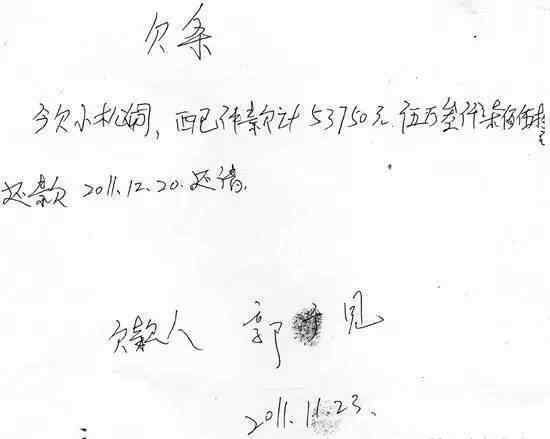 欠条
今欠小松阁,配件款计53750元.伍万叁仟柒佰伍拾元
还款2011.12.20.还清.
欠款人 郭 见
2011.11.23.